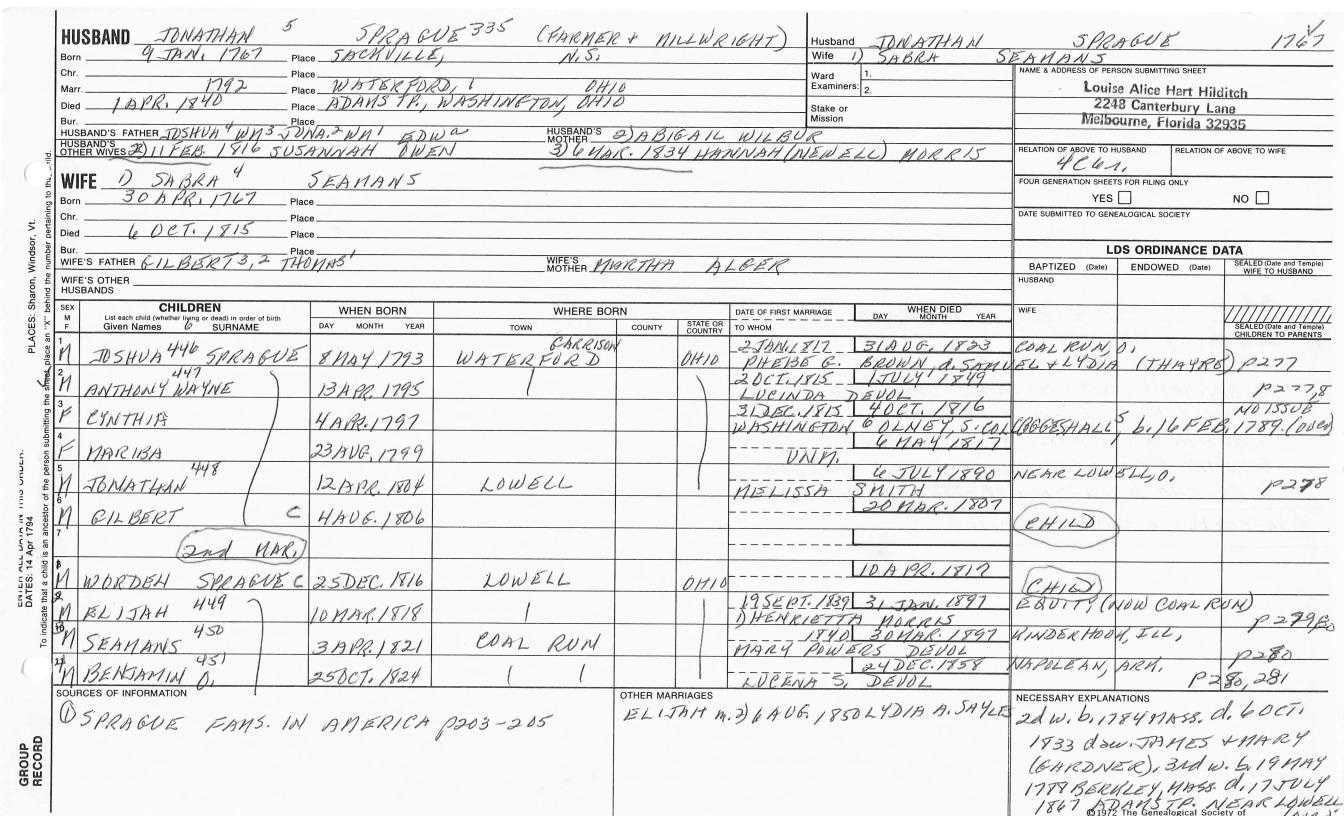 HUSBAND JONATHAN 5 SPRAGUE 335 (FARMER + MILLWRIGHT)
Born 9 JAN. 1767 Place SACKVILLE, N.S.
Chr. Place
Marr. 1792 Place WATERFORD, OHIO
Died 1 APR. 1840 Place ADAMS TP., WASHINGTON, OHIO
Bur. Place
HUSBAND'S FATHER JOSHUA 4 WM 3 JONA. 2 WM 1 EDW a HUSBAND'S MOTHER 2) ABIGAIL WILBUR
HUSBAND'S OTHER WIVES 2) 11 FEB. 1816 SUSANNAH OWEN 3) 6 MAR. 1834 HANNAH (NEWELL) MORRIS
Husband JONATHAN SPRAGUE 1767
Wife 1) SABRA SEAMANS
Ward Examiners: 1. 2.
Stake or Mission
NAME & ADDRESS OF PERSON SUBMITTING SHEET
Louise Alice Hart Hilditch
2248 Canterbury Lane
Melbourne, Florida 32935
RELATION OF ABOVE TO HUSBAND RELATION OF ABOVE TO WIFE
FOUR GENERATION SHEETS FOR FILING ONLY
YES NO
DATE SUBMITTED TO GENEALOGICAL SOCIETY
WIFE 1) SABRA 4 SEAMANS
Born 30 APR. 1767 Place
Chr. Place
Died 6 OCT. 1815 Place
Bur. Place
WIFE'S FATHER GILBERT 3,2 THOMAS 1 WIFE'S MOTHER MARTHA ALGER
WIFE'S OTHER HUSBANDS
LDS ORDINANCE DATA
BAPTIZED (Date) ENDOWED (Date) SEALED (Date and Temple) WIFE TO HUSBAND
HUSBAND
WIFE
SEALED (Date and Temple) CHILDREN TO PARENTS
SEX M F CHILDREN List each child (whether living or dead) in order of birth Given Names 6 SURNAME
WHEN BORN DAY MONTH YEAR
WHERE BORN TOWN COUNTY STATE OR COUNTRY
DATE OF FIRST MARRIAGE TO WHOM
WHEN DIED DAY MONTH YEAR
1 M JOSHUA 446 SPRAGUE 8 MAY 1793 WATERFORD GARRISON OHIO 2 JAN. 1817 31 AUG. 1823 COAL RUN, O.
PHEBE G. BROWN, d. SAMUEL & LYDIA (THAYRE) P277
2 M ANTHONY WAYNE 447 13 APR. 1795 2 OCT. 1815 1 JULY 1849
LUCINDA DEVOL P277,8
3 F CYNTHIA 4 APR. 1797 31 DEC. 1815 4 OCT. 1816 NO ISSUE
WASHINGTON 6 OLNEY, S. COGGESHALL 5, b. 16 FEB. 1789.
4 F MARIBA 23 AUG. 1799 6 MAY 1817
UNM.
5 M JONATHAN 448 12 APR. 1804 LOWELL 6 JULY 1890 NEAR LOWELL, O.
MELISSA SMITH P278
6 M GILBERT C 4 AUG. 1806 20 MAR. 1807 CHILD
7 2nd MAR.
8 M WORDEN SPRAGUE C 25 DEC. 1816 LOWELL OHIO 10 APR. 1817 CHILD
9 M ELIJAH 449 10 MAR. 1818 19 SEPT. 1839 31 JAN. 1897 EQUITY (NOW COAL RUN)
1) HENRIETTA MORRIS
10 M SEAMANS 450 3 APR. 1821 COAL RUN 1840 30 MAR. 1897 KINDERHOOK, ILL.
MARY POWERS DEVOL P280
11 M BENJAMIN O. 451 25 OCT. 1824 24 DEC. 1858 NAPOLEAN, ARK.
LUCENA S. DEVOL P280, 281
SOURCES OF INFORMATION
1 SPRAGUE FAMS. IN AMERICA p203-205
OTHER MARRIAGES
ELIJAH m. 2) 6 AUG. 1850 LYDIA A. SAYLES
NECESSARY EXPLANATIONS
2d w. b. 1784 MASS. d. 6 OCT.
1833 daw. JAMES + MARY
(GARDNER). 3rd w. b. 19 MAY
1788 BERKLEY, MASS. d. 17 JULY
1867 ADAMS TP. NEAR LOWELL
©1972 The Genealogical Society of
PLACES: Sharon, Windsor, Vt.
ENTER ALL DATA IN THIS ORDER:
DATES: 14 Apr 1794
To indicate that a child is an ancestor of the person submitting the sheet, place an "X" behind the number pertaining to that child.
GROUP RECORD